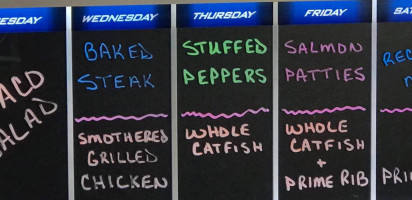 WEDNESDAY
BAKED
STEAK
SMOTHERED
GRILLED
CHICKEN
THURSDAY
STUFFED
PEPPERS
WHOLE
CATFISH
FRIDAY
SALMON
PATTIES
WHOLE
CATFISH
+
PRIME RIB